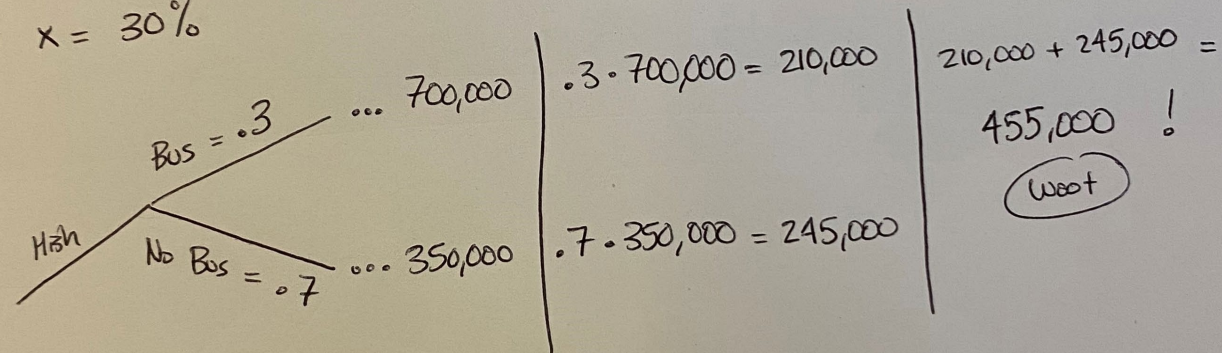 x = 30%
High
Bus = .3 ... 700,000
No Bus = .7 ... 350,000
.3 · 700,000 = 210,000
.7 · 350,000 = 245,000
210,000 + 245,000 =
455,000 !
woot